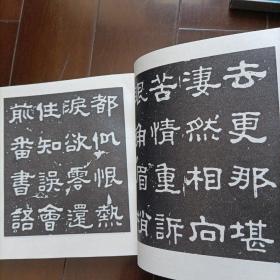 去更那堪
淒然相向
苦情重訴
眼角眉梢
都似恨熱
淚欲零還
住知誤會
前番書語